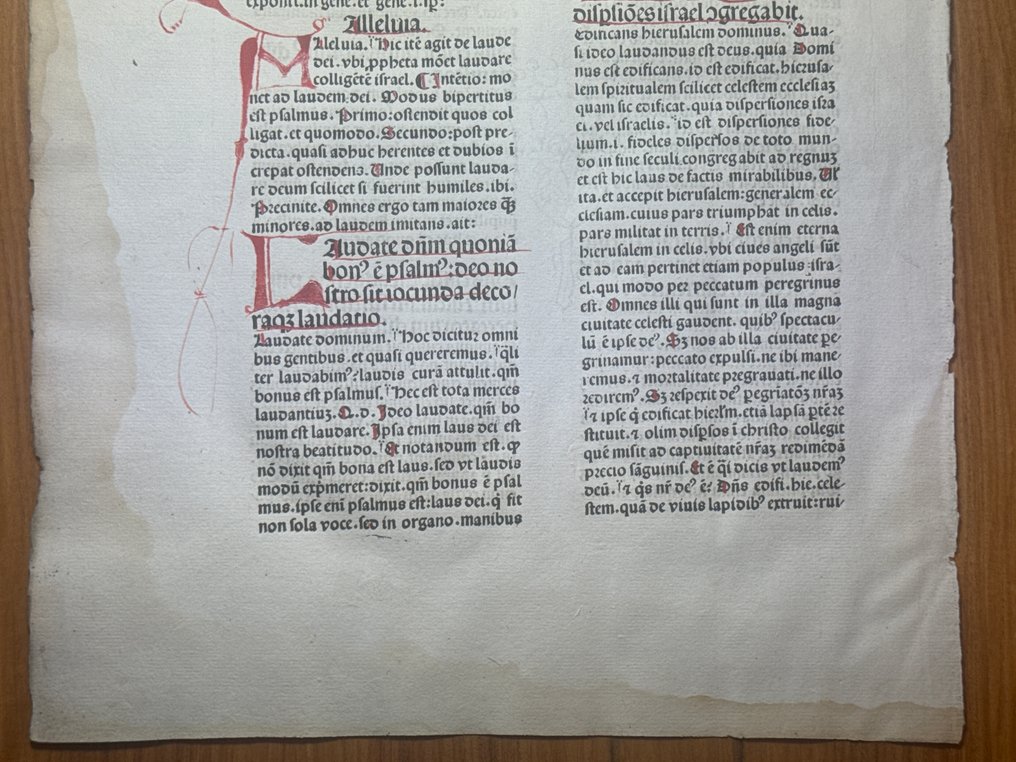 exponit.in gene.et gene.i.ip:
Alleluia.
Alleluia. Hic itē agit de laude
dei.vbi ꝓpheta mōet laudare
colligētē israel.¶Intētio: mo
net ad laudem dei. Modus bipertitus
est psalmus. Primo:ostendit quos col
ligat.et quomodo.Secundo:post pre-
dicta.quasi adhuc herentes et dubios ī
crepat ostendens.Unde possunt lauda-
re deum scilicet si fuerint humiles.ibi.
Precinite.Omnes ergo tam maiores qȝ
minores.ad laudem imitans.ait:
LAudate dn̄m quoniā
bonꝰ ē psalmꝰ:deo no
stro sit iocunda deco/
raqȝ laudatio.
Laudate dominum. Hoc dicitur omni
bus gentibus.et quasi quereremus. q̄li
ter laudabimꝰ:laudis curā attulit.qm̄
bonus est psalmus. Hec est tota merces
laudantiuȝ.Q.d.Ideo laudate.qm̄ bo
num est laudare.Ipsa enim laus dei est
nostra beatitudo. Et notandum est.ꝙ
nō dixit qm̄ bona est laus.sed vt laudis
modū exp̄meret:dixit.qm̄ bonus ē psal
mus.ipse eni psalmus est:laus dei.q̇ fit
non sola voce.sed in organo.manibus
dispsiōes israel ꝯgregabit.
Edificans hierusalem dominus. Qua-
si ideo laudandus est deus.quia Domi
nus est edificans.id est edificat.hierusa-
lem spiritualem scilicet celestem ecclesiaȝ
quam sic edificat.quia dispersiones isra
el.vel israelis. id est dispersiones fide-
lium.i. fideles dispersos de toto mun-
do in fine seculi congregabit ad regnuȝ
et est hic laus de factis mirabilibus.Ul
ita.et accepit hierusalem:generalem ec-
clesiam.cuius pars triumphat in celis.
pars militat in terris. Est enim eterna
hierusalem in celis.vbi ciues angeli sūt
et ad eam pertinet etiam populus isra-
el.qui modo per peccatum peregrinus
est. Omnes illi qui sunt in illa magna
ciuitate celesti gaudent. quibꝰ spectacu-
lū ē ipse deꝰ.Sȝ nos ab illa ciuitate pe-
grinamur:peccato expulsi.ne ibi mane-
remus.⁊ mortalitate pregrauati.ne illo
rediremꝰ.Sȝ respexit deꝰ pegriatōȝ nr̄aȝ
⁊ ipse q̇ edificat hierl'm.etiā lapsā ptē re
stituit.⁊ olim dispsos ī christo collegit
quē misit ad captiuitatē nr̄aȝ redimēdā
precio sāguinis.Et ē q̇i dicis vt laudemꝰ
deū. ⁊ q̇s nr̄ deꝰ ē? Dn̄s edifi.hie.cele-
stem.quā de viuis lapidibꝰ extruit:rui-